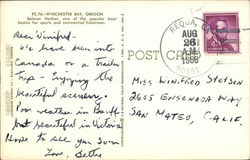 PC76—WINCHESTER BAY, OREGON
Salmon Harbor, one of the popular boat
basins for sports and commercial fishermen.
Dear Winifred—
We have been into
Canada on a Trailer
Trip — Enjoying the
beautiful scenery.
Poor weather in Banff
but beautiful in Victoria
Hope to see you soon
Love, Bette
POST CARD
REQUA
AUG
26
1966
Miss Winifred Stetson
2605 Ensenga Way
San Mateo, Calif.